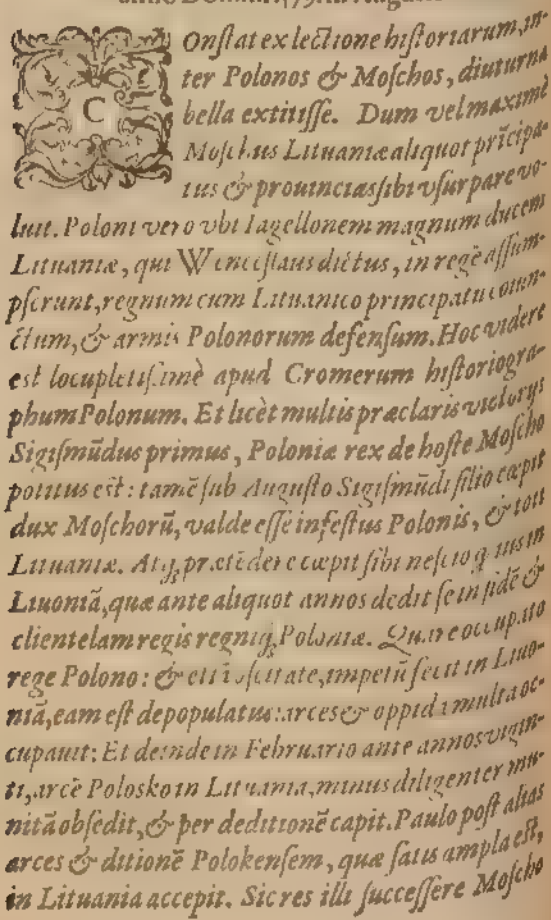 anno Domini 1579. in Augusto
COnſtat ex lectione hiſtoriarum, in-
ter Polonos & Moſchos, diuturna
bella extitiſſe. Dum vel maximè
Moſchus Lituaniæ aliquot prīcipa-
tus & prouincias ſibi vſurpare vo-
luit. Poloni vero vbi Iagellonem magnum ducem
Lituaniæ, qui Wenceſlaus dictus, in regē aſſum-
pſerunt, regnum cum Lituanico principatu coniun-
ctum, & armis Polonorum defenſum. Hoc videre
est locupletiſsimè apud Cromerum hiſtoriogra-
phum Polonum. Et licèt multis præclaris victorijs
Sigiſmūdus primus, Poloniæ rex de hoſte Moſcho
potitus eſt: tamē ſub Auguſto Sigiſmūdi filio cœpit
dux Moſchorū, valde eſſe infeſtus Polonis, & toti
Lituaniæ. Atq; prætēdere cœpit ſibi neſcio q̄ ius in
Liuoniā, quæ ante aliquot annos dedit ſe in fidē &
clientelam regis regniq; Poloniæ. Quare occupato
rege Polono: & oſcitate, impetū fecit in Liuo-
niā, eam eſt depopulatus: arces & oppida multa oc-
cupauit: Et deinde in Februario ante annos vigin-
ti, arcē Polosko in Lituania, minus diligenter mu-
nitā obſedit, & per deditionē capit. Paulo poſt alias
arces & ditionē Polokenſem, quæ ſatis ampla eſt,
in Lituania accepit. Sic res illi ſucceſſere Moſcho